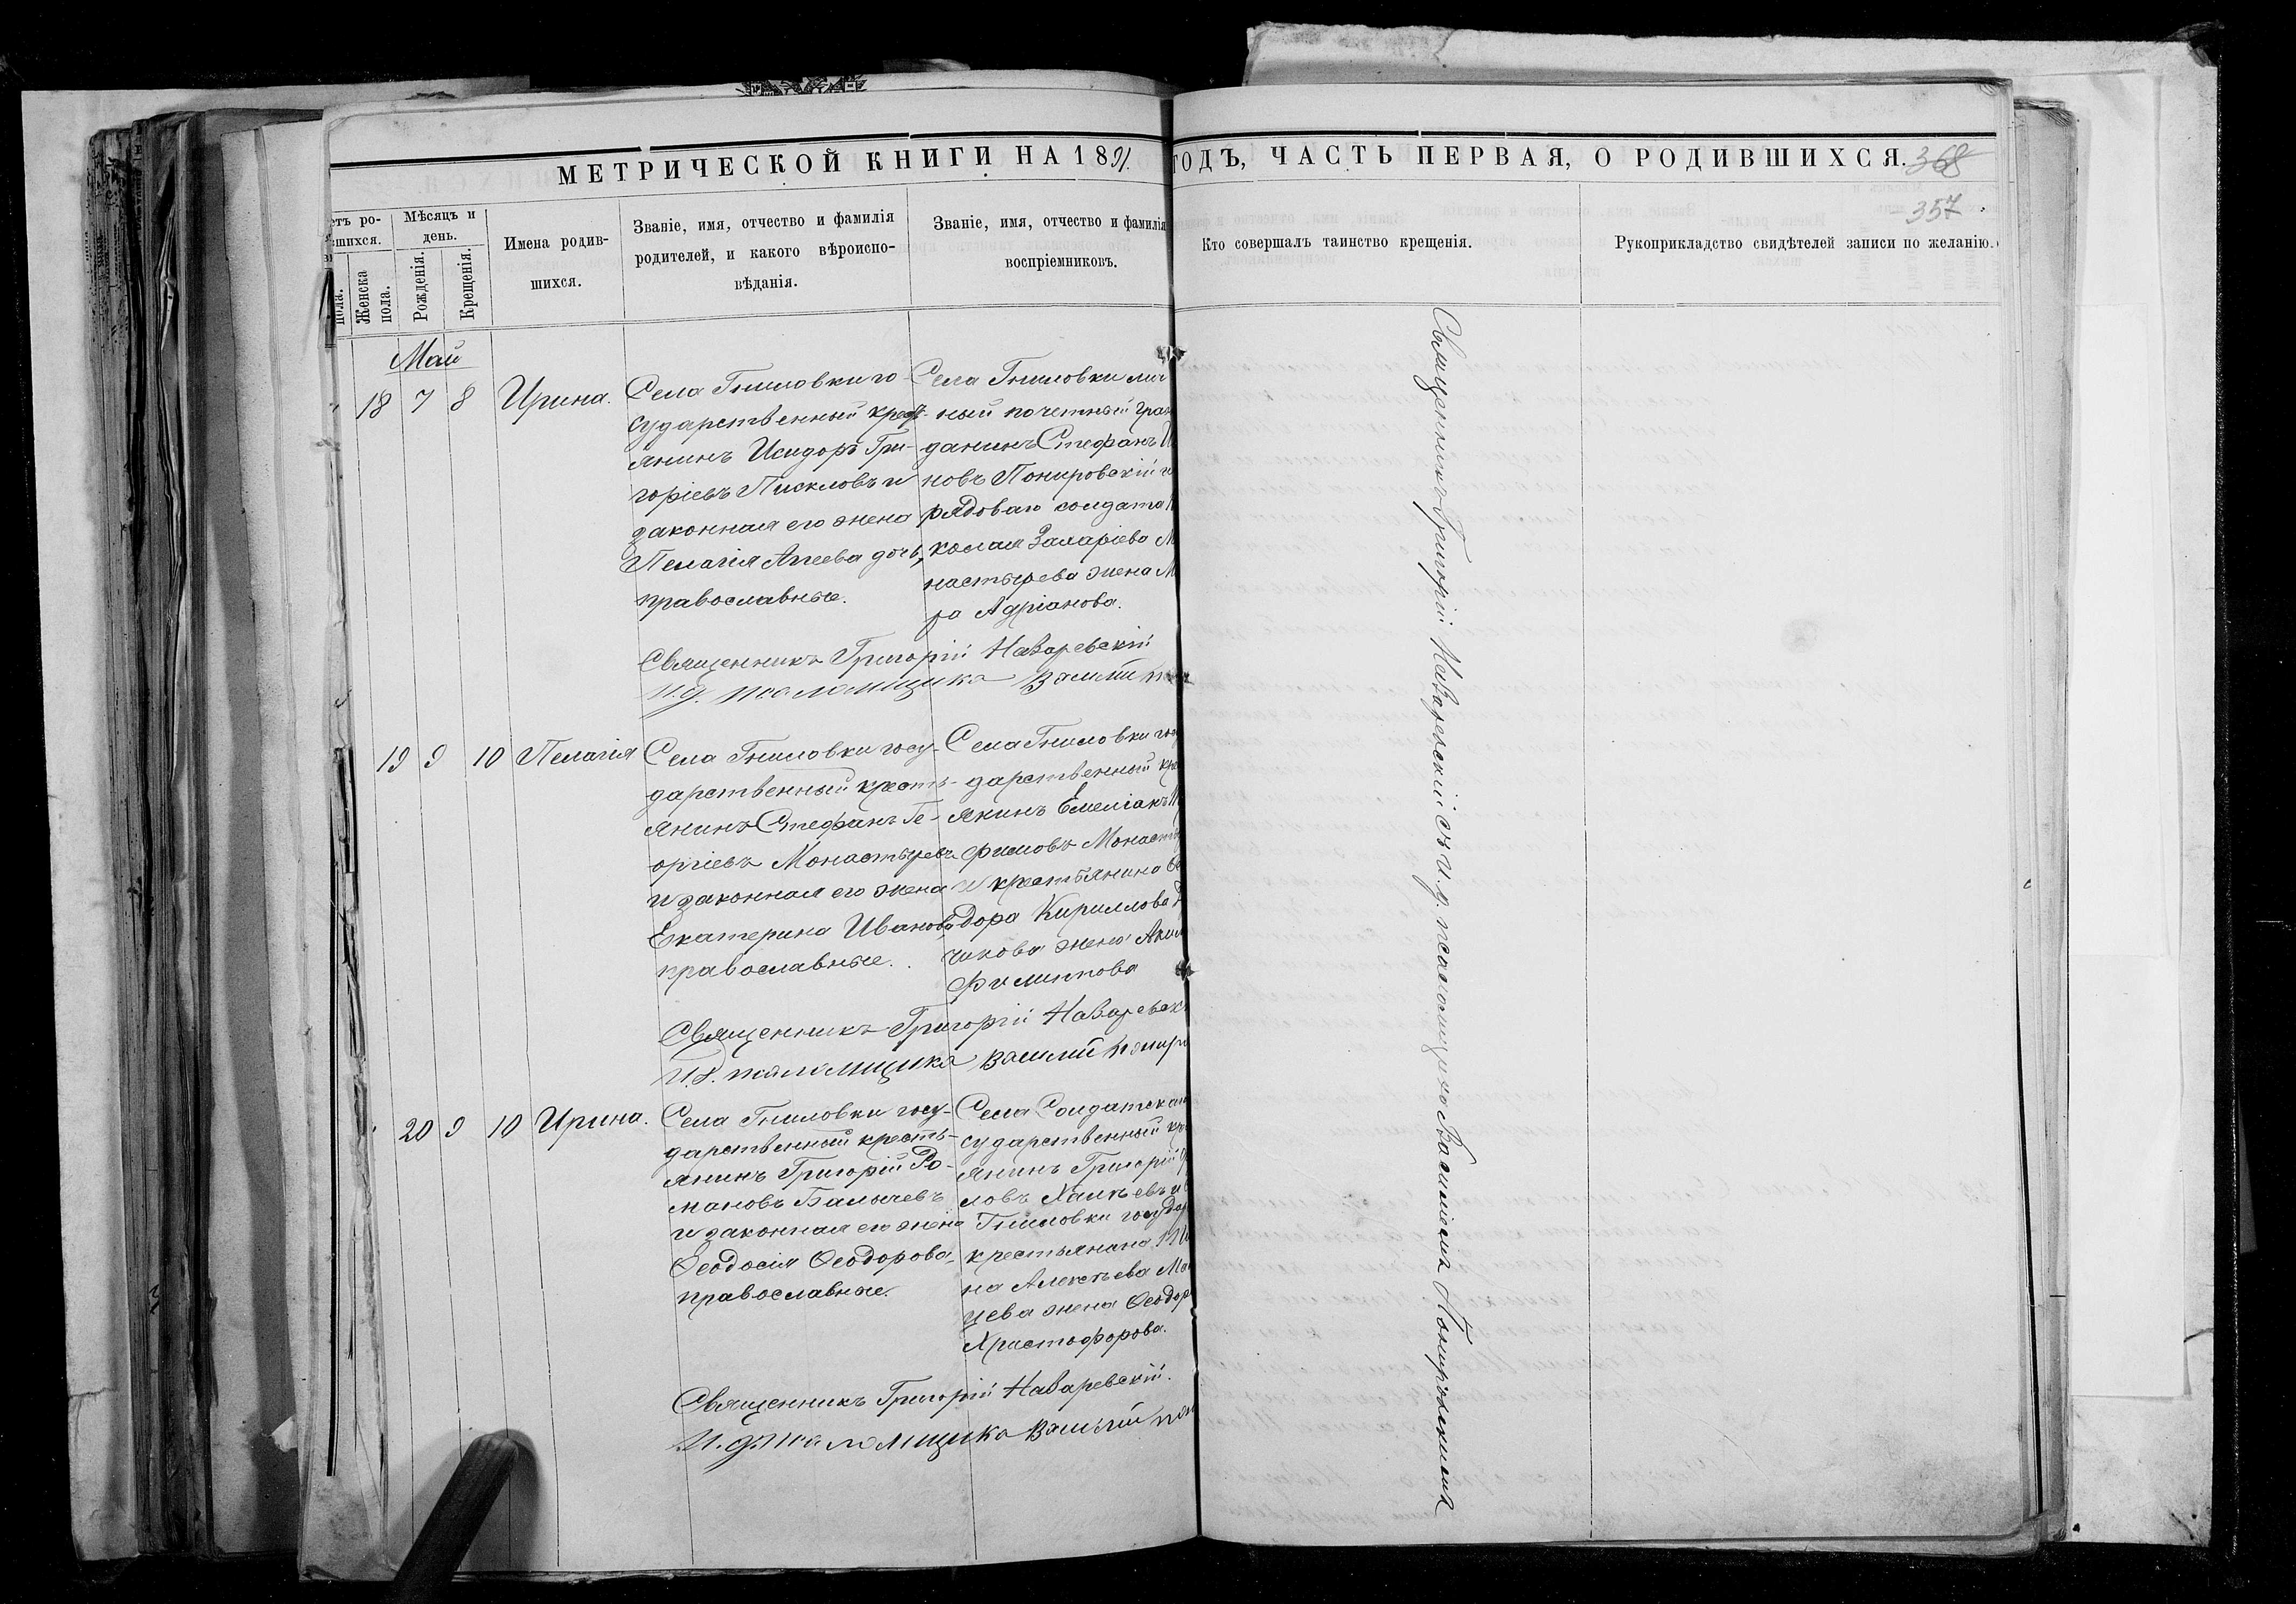 МЕТРИЧЕСКОЙ КНИГИ НА 1891 ГОДЪ, ЧАСТЬ ПЕРВАЯ, О РОДИВШИХСЯ.
368
357
Мѣсяцъ и
день.
Женска
пола.
Рожденія.
Крещенія.
Имена родив-
шихся.
Званіе, имя, отчество и фамилія
родителей, и какого вѣроиспо-
вѣданія.
Званіе, имя, отчество и фамилія
воспріемниковъ.
Кто совершалъ таинство крещенія.
Рукоприкладство свидѣтелей записи по желанію.
Май
18 7 8 Ирина.
Села Гниловки го-
сударственный крест-
янинъ Исидоръ Гри-
горіевъ Пискловъ и
законная его жена
Пелагія Агеева дочь,
православные.
Села Гниловки лич
ный почетный граж
данинъ Стефанъ И
новъ Понировскій и
рядоваго солдата
колая Захаріева М
настырева жена М
ра Адріанова.
Священникъ Григорій Назаревскій
И.д. псаломщика Василій
19 9 10 Пелагія
Села Гниловки госу-
дарственный кресть-
янинъ Стефанъ Ге-
оргіевъ Монастыревъ
и законная его жена
Екатерина Иванова,
православные.
Села Гниловки гос
дарственный кре
янинъ Емеліанъ
фимовъ Монаст
и крестьянина
дора Кириллова
чикова жена
Филиппова
Священникъ Григорій Назаревск
И.д. псаломщика Василій Понир
20 9 10 Ирина.
Села Гниловки госу-
дарственный кресть-
янинъ Григорій Ро-
мановъ Балычевъ
и законная его жена
Ѳеодосія Ѳеодорова,
православные.
Села Солдатска
сударственный кре
янинъ Григорій
ловъ Халкъевъ и
Гниловки государ
крестьянина
на Алексѣева
цева жена Ѳеодор
Христофорова.
Священникъ Григорій Назаревскій.
И.д. псаломщика Василій
Священникъ Григорій Назаревскій съ и.д. псаломщика Василіемъ Понировскимъ